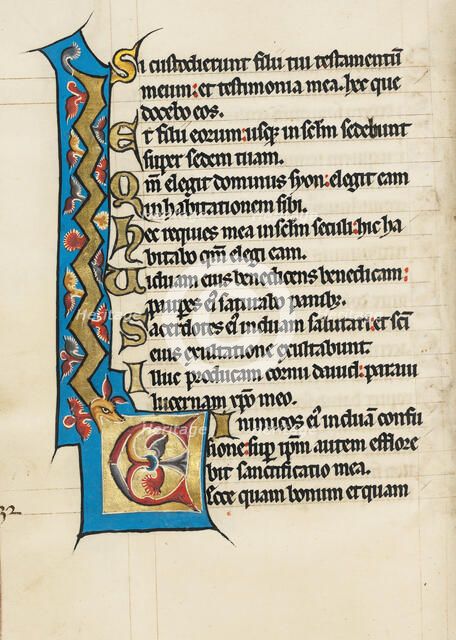 Si custodierunt filii tui testamentū
meum: et testimonia mea. hec que
docebo eos.
Et filii eorum: usq; in sclm sedebunt
super sedem tuam.
Qm elegit dominus syon: elegit eam
in habitationem sibi.
Hec requies mea in sclm seculi: hic ha
bitabo qm elegi eam.
Uiduam eius benedicens benedicam:
paupes ei saturabo panib;.
Sacerdotes ei induam salutari: et sci
eius exultatione exultabunt.
Illuc producam cornu dauid: paraui
lucernam xpo meo.
Inimicos ei induā confu
sione: sup ipm autem efflore
bit sanctificatio mea.
Ecce quam bonum et quam
32
Heritage